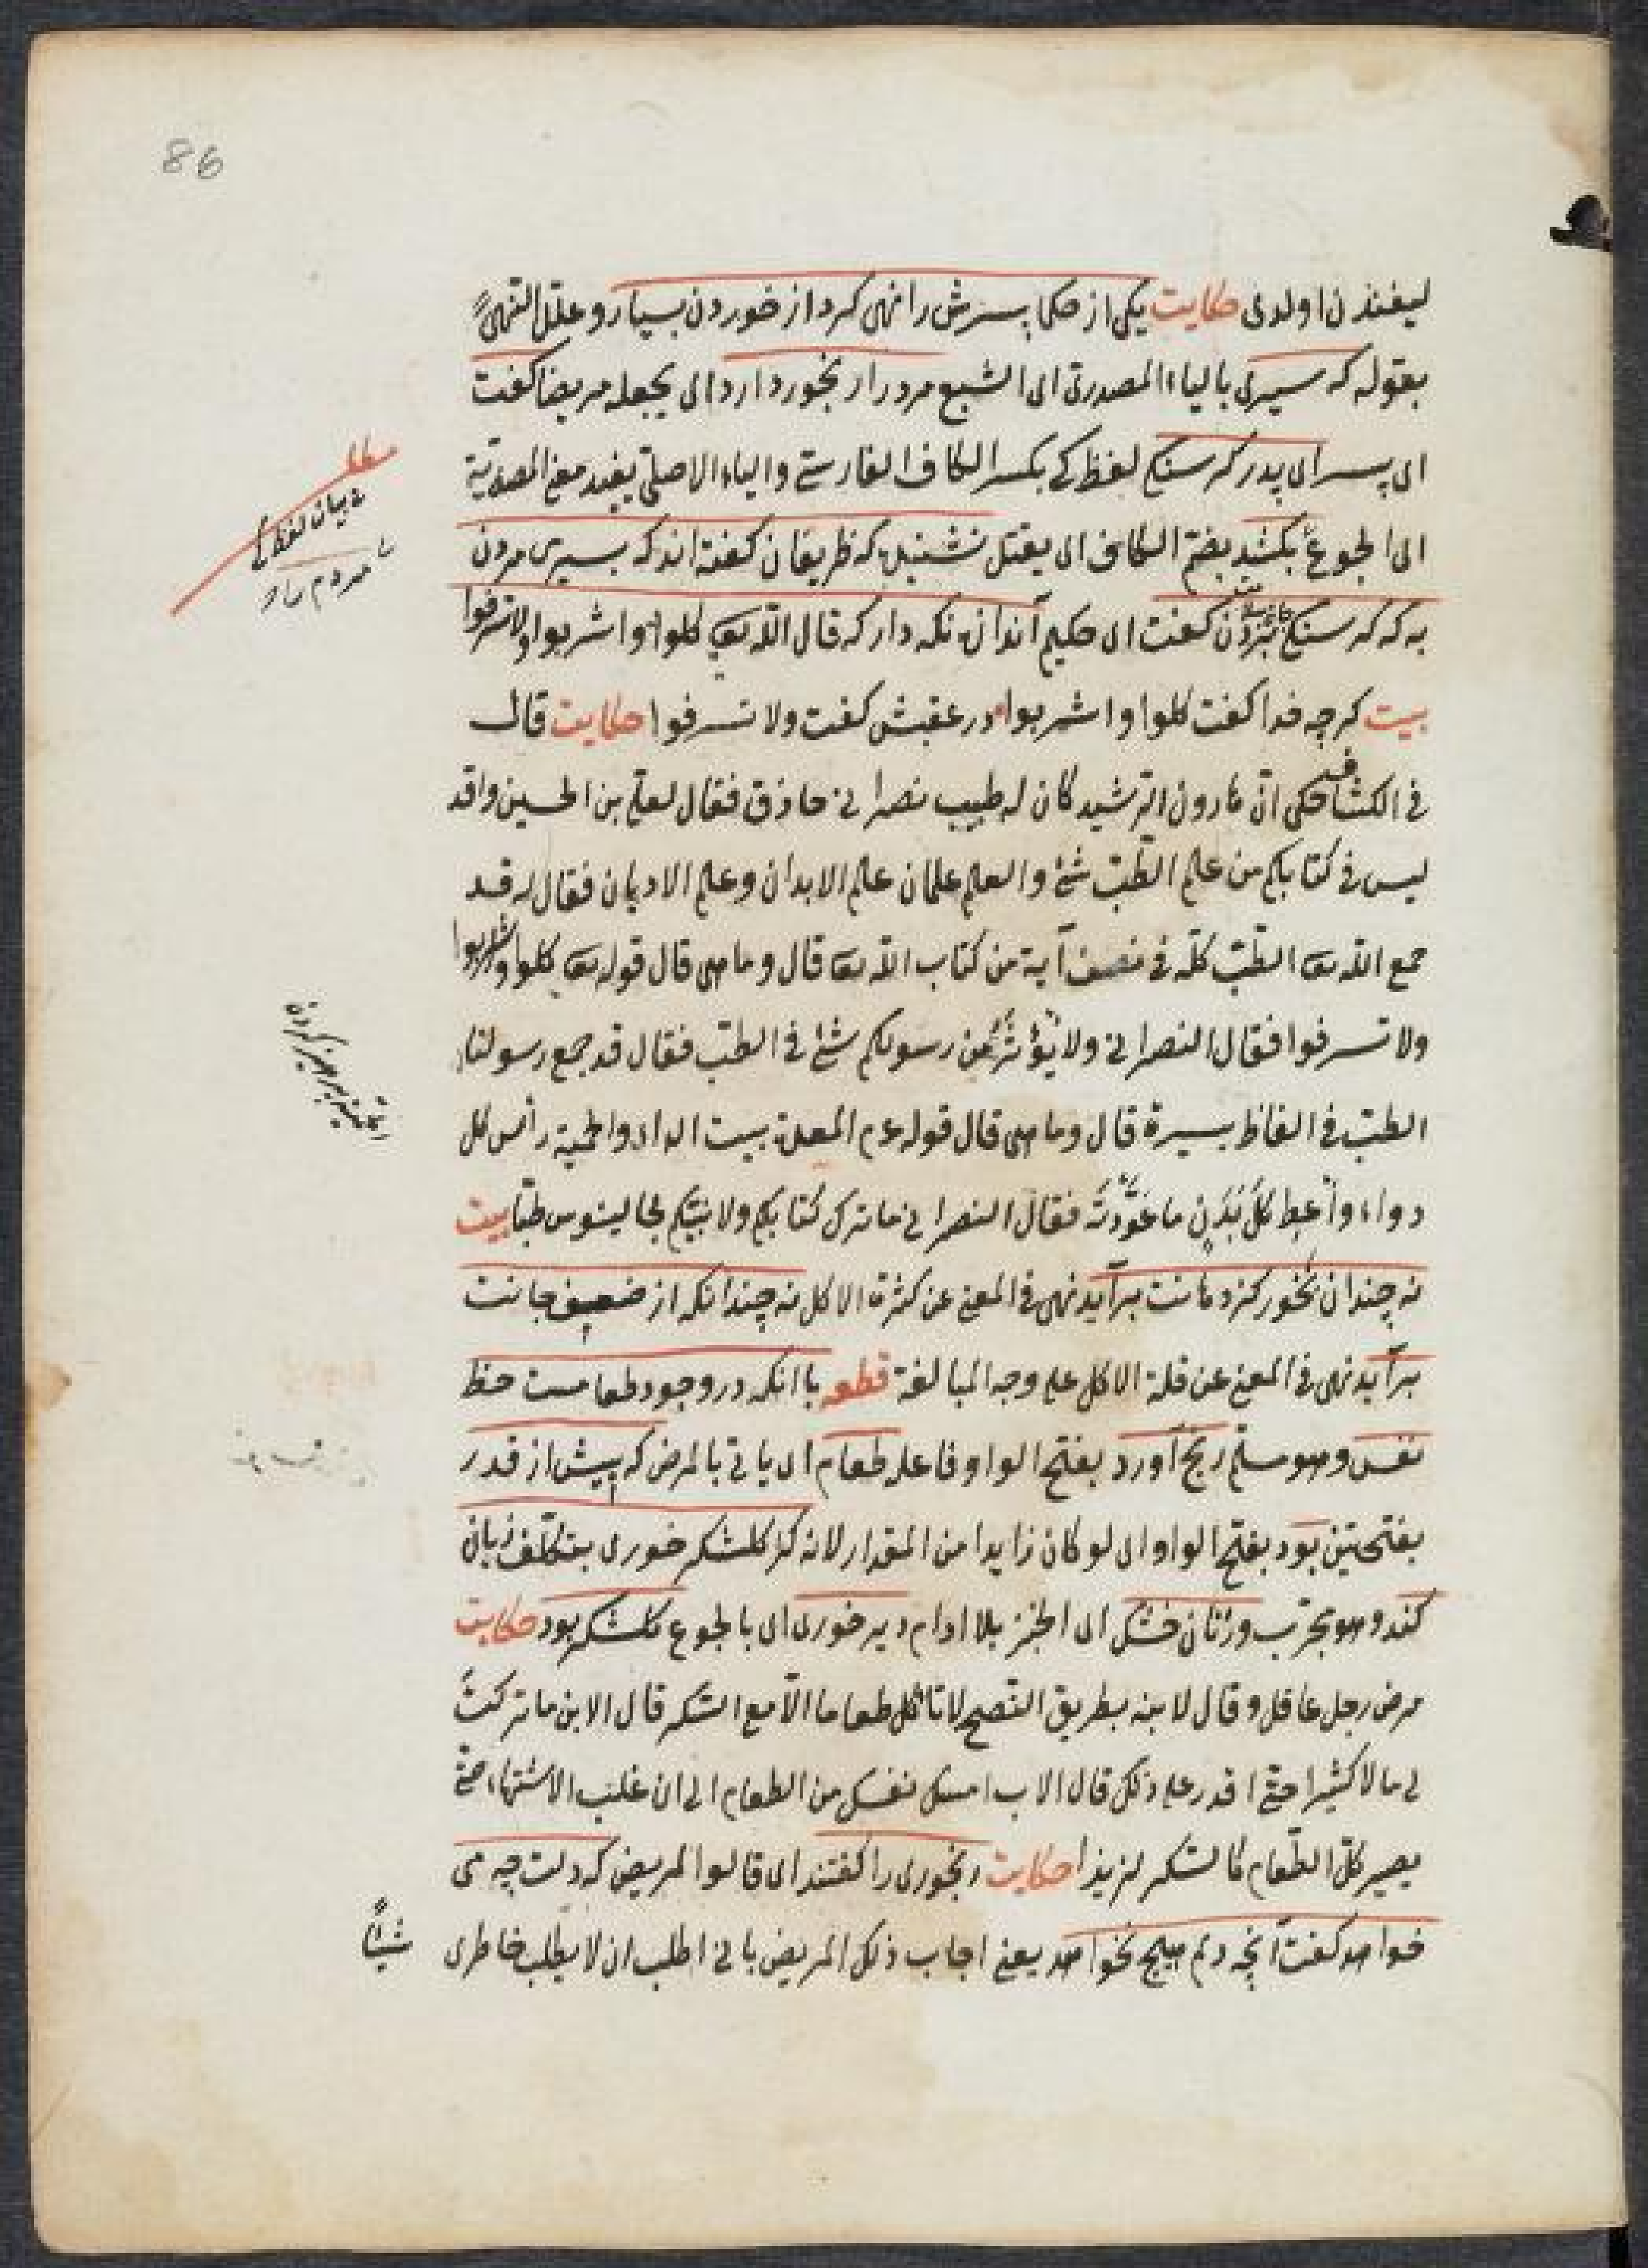 86
حكايت يكى از حكما پسرش را نهى كرد از خوردن بسيار و علل النهى
بقوله كه سيرى بالياء المصدرى اى الشبع مرد را رنجور دارد اى يجعله مريضا كفت
اى پسر اى پدر كه سنكى لفظ كى بكسر الكاف الفارسى والياء الاصلى يفيد معنى المصدرية
اى الجوع بكشد بضم الكاف اى يقتل نشنيدۀ كه ظريفان كفته اند كه بسيرى مردن
به كه كرسنكى بردن كفت اى حكيم اندازه نكه دار كه قال الله تعالى كلوا واشربوا ولا تسرفوا
بيت كرچه خدا كفت كلوا واشربوا در عقبش كفت ولا تسرفوا حكايت قال
فى الكشاف حكى ان هارون الرشيد كان له طبيب نصرانى حاذق فقال لعلى بن الحسين واقد
ليس فى كتابكم من علم الطب شئ والعلم علمان علم الابدان وعلم الاديان فقال له قد
جمع الله تعالى الطب كله فى نصف آية من كتاب الله تعالى قال وما هى قال قوله تعالى كلوا واشربوا
ولا تسرفوا فقال النصرانى ولا يؤثر عن رسولكم شئ فى الطب فقال قد جمع رسولنا
الطب فى الفاظ يسيرة قال وما هى قال قوله عم المعدة بيت الداء والحمية رأس كل
دواء واعط كل بدن ما عودته فقال النصرانى ما ترك كتابكم ولا نبيكم لجالينوس طبا بيت
نه چندان بخور كز دهانت برآيد نهى فى المعنى عن كثرة الاكل نه چندانكه از ضعف جانت
برآيد نهى فى المعنى عن قلة الاكل على وجه المبالغة قطعه باانكه در وجود طعامست حظ
نفس وهو مسلم رنج آورد بفتح الواو فاعله طعام اى ياتى بالمرض كه بيش از قدر
بفتحتين بود بفتح الواو اى لو كان زايدا من المقدار لانه كر كلشكر خورى بتكلف زيان
كند وهو مجرب ور نان خشك اى الخبز بلا ادام دير خورى اى بالجوع كلشكر بود حكايت
مرض رجل عاقل وقال لابنه بطريق النصح لا تاكل طعاما الا مع الشكر قال الابن ما تركت
لى مالا كثيرا حتى اقدر على ذلك قال الاب امسك نفسك من الطعام الى ان غلب الاشتهاء حتى
يصير كل الطعام كالشكر لذيذا حكايت رنجورى را كفتند اى قالوا لمريض كه دلت چه مى
خواهد كفت آنچه دلم هيچ نخواهد يعنى اجاب ذلك المريض بانى اطلب ان لا يطلب خاطرى شيئا
مطلب
بيان لفظ كى